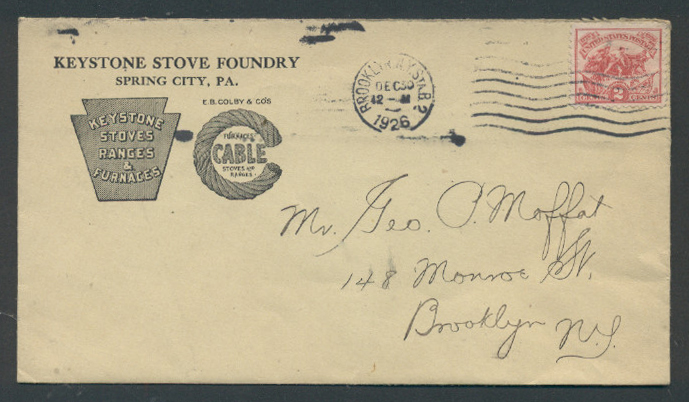 KEYSTONE STOVE FOUNDRY
SPRING CITY, PA.
KEYSTONE
STOVES
RANGES
&
FURNACES
E.B. COLBY & CO'S
FURNACES
CABLE
STOVES AND
RANGES
BROOKLYN, N.Y. STA. 2
DEC 30
12 - M
1926
UNITED STATES POSTAGE
2
CENTS
Mr. Geo. P. Moffat
148 Monroe St.
Brooklyn N.Y.